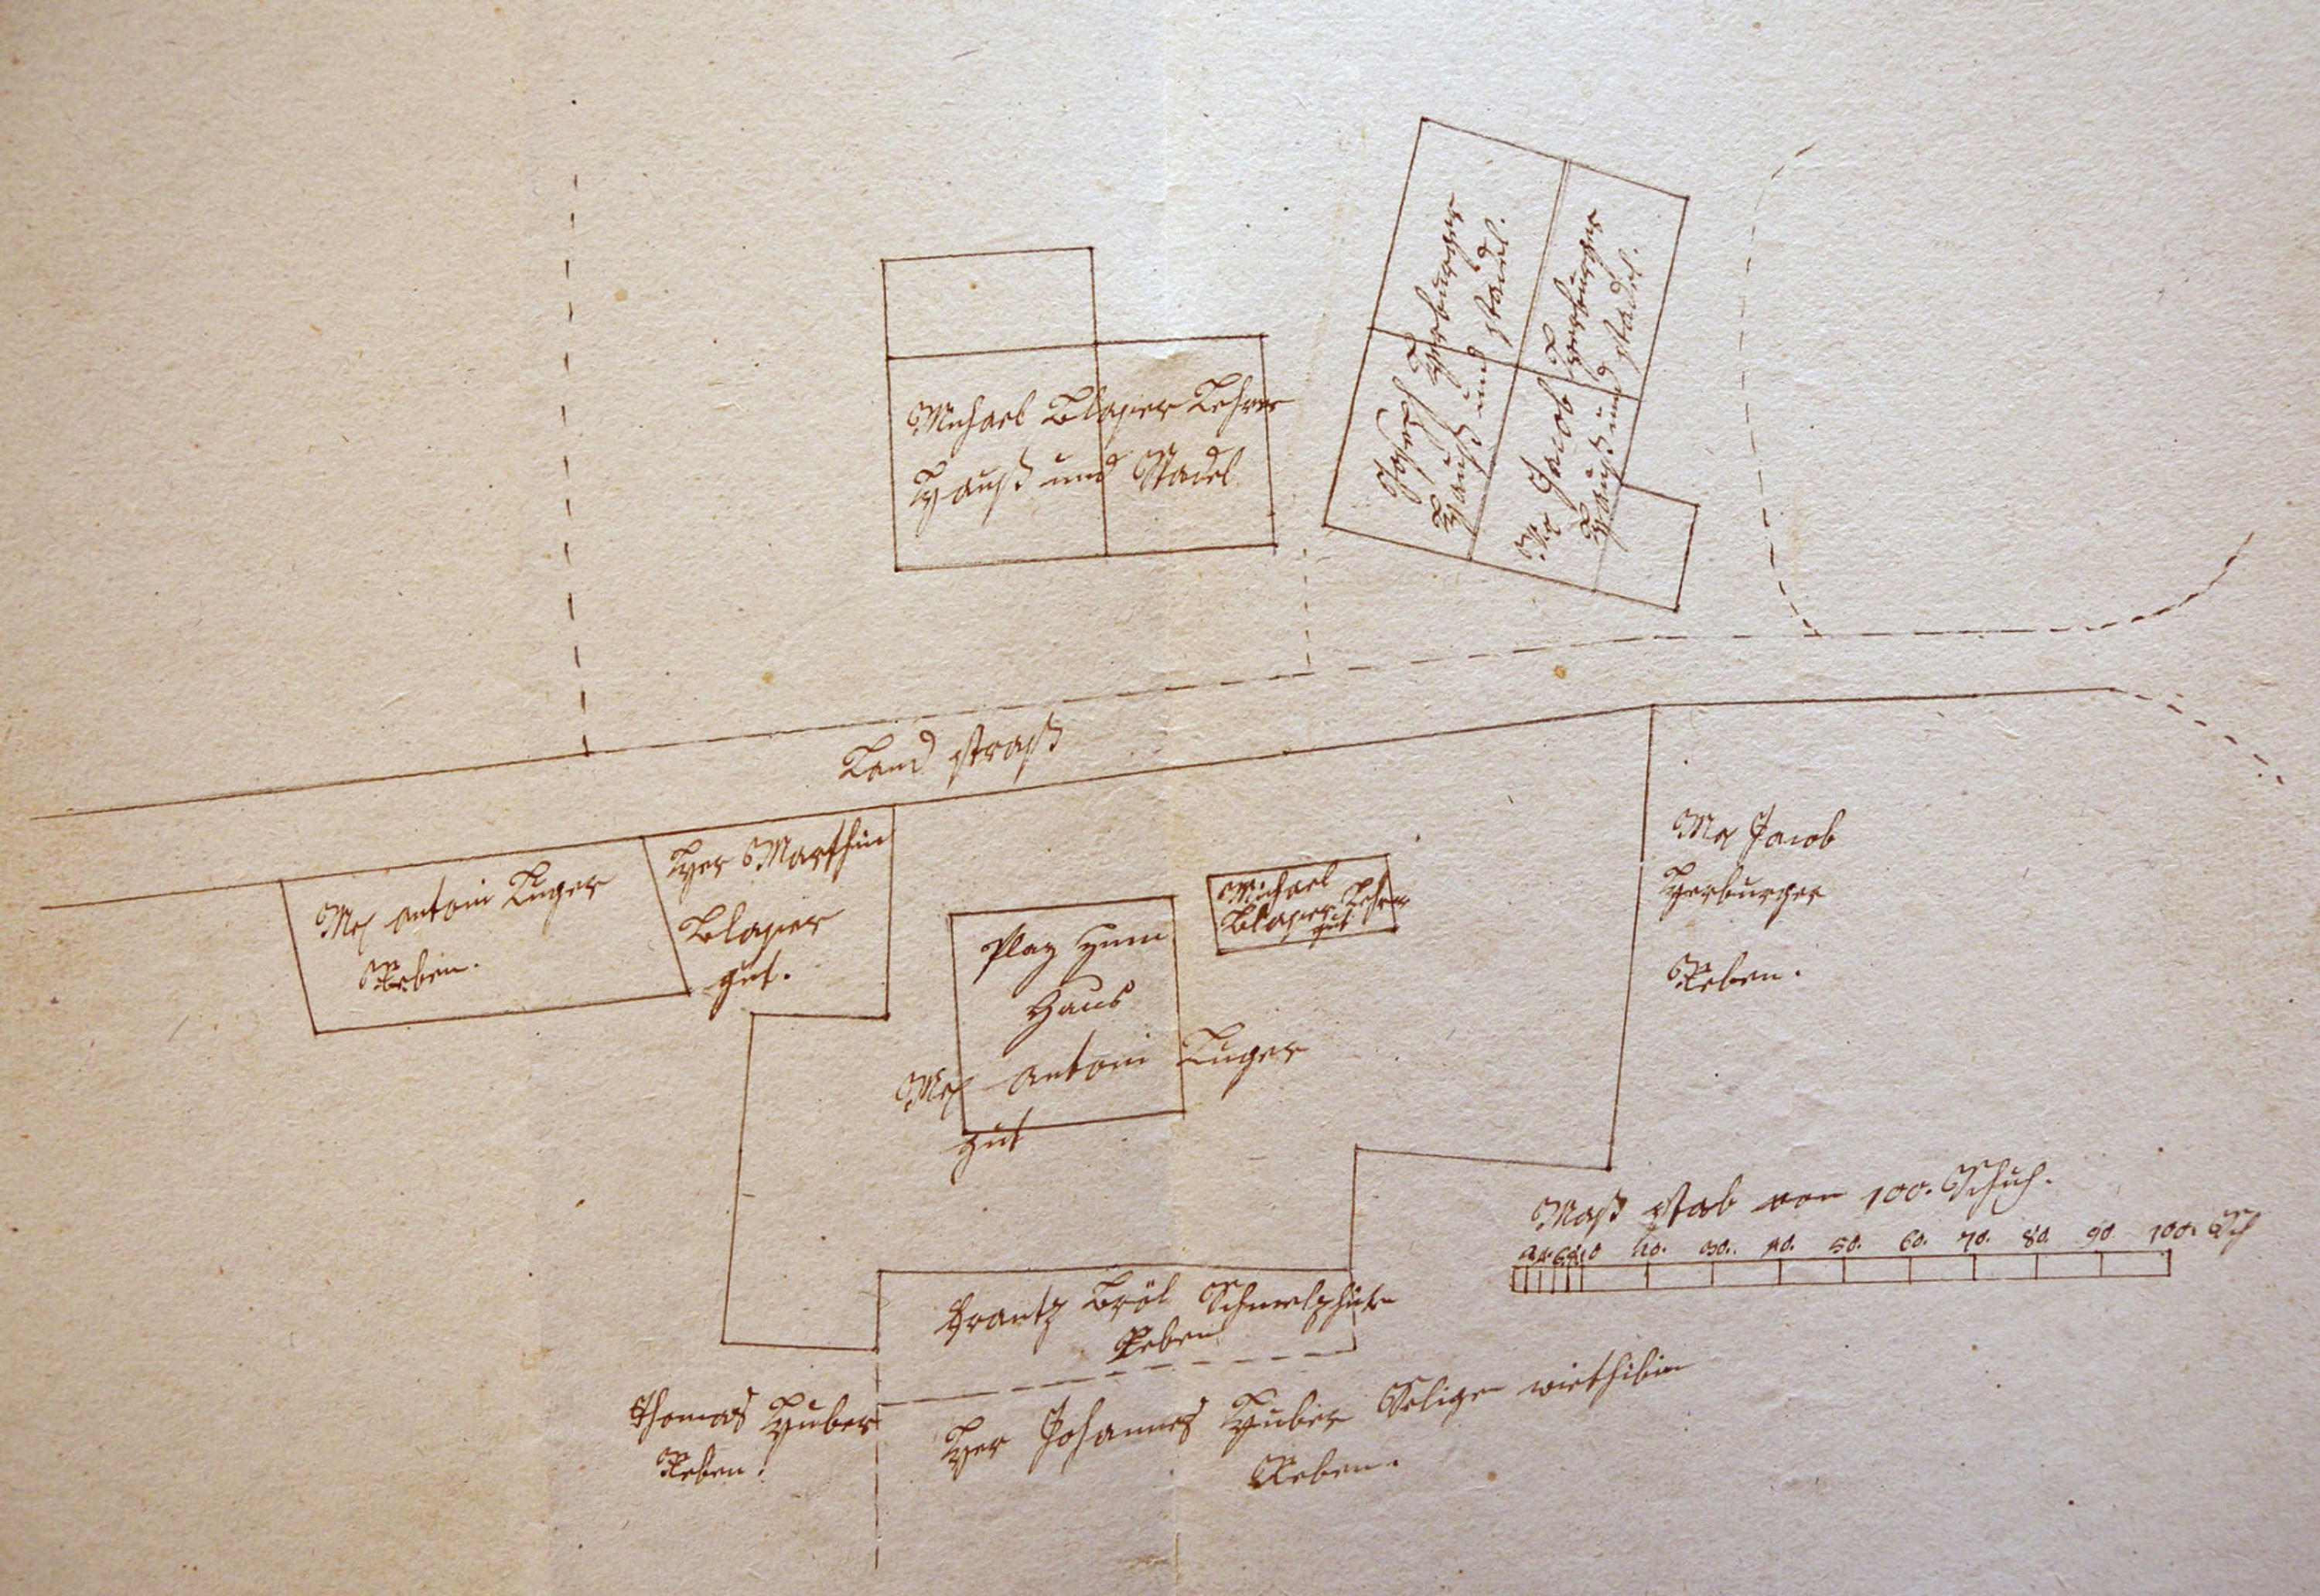 Michael Blaser Lehrer
Hauß und Stadel
Joseph Herburger
Hauß und stadel.
Mr Jacob Herburger
Hauß und stadel.
Land straß
Mr antoni Luger
Reben.
Her Marthin
Blaser
gut.
Plaz zum
Haus
Mr antoni Luger
gut
Michael
Blaser Lehrer
gut
Mr Jacob
Herburger
Reben.
Maß stab von 100. Schuh.
2. 4. 6. 8. 10 20. 30. 40. 50. 60. 70. 80. 90. 100. Sch
Frantz Bröl
Reben
Thomas Huber
Reben.
Her Johannes Huber Selige
Reben.